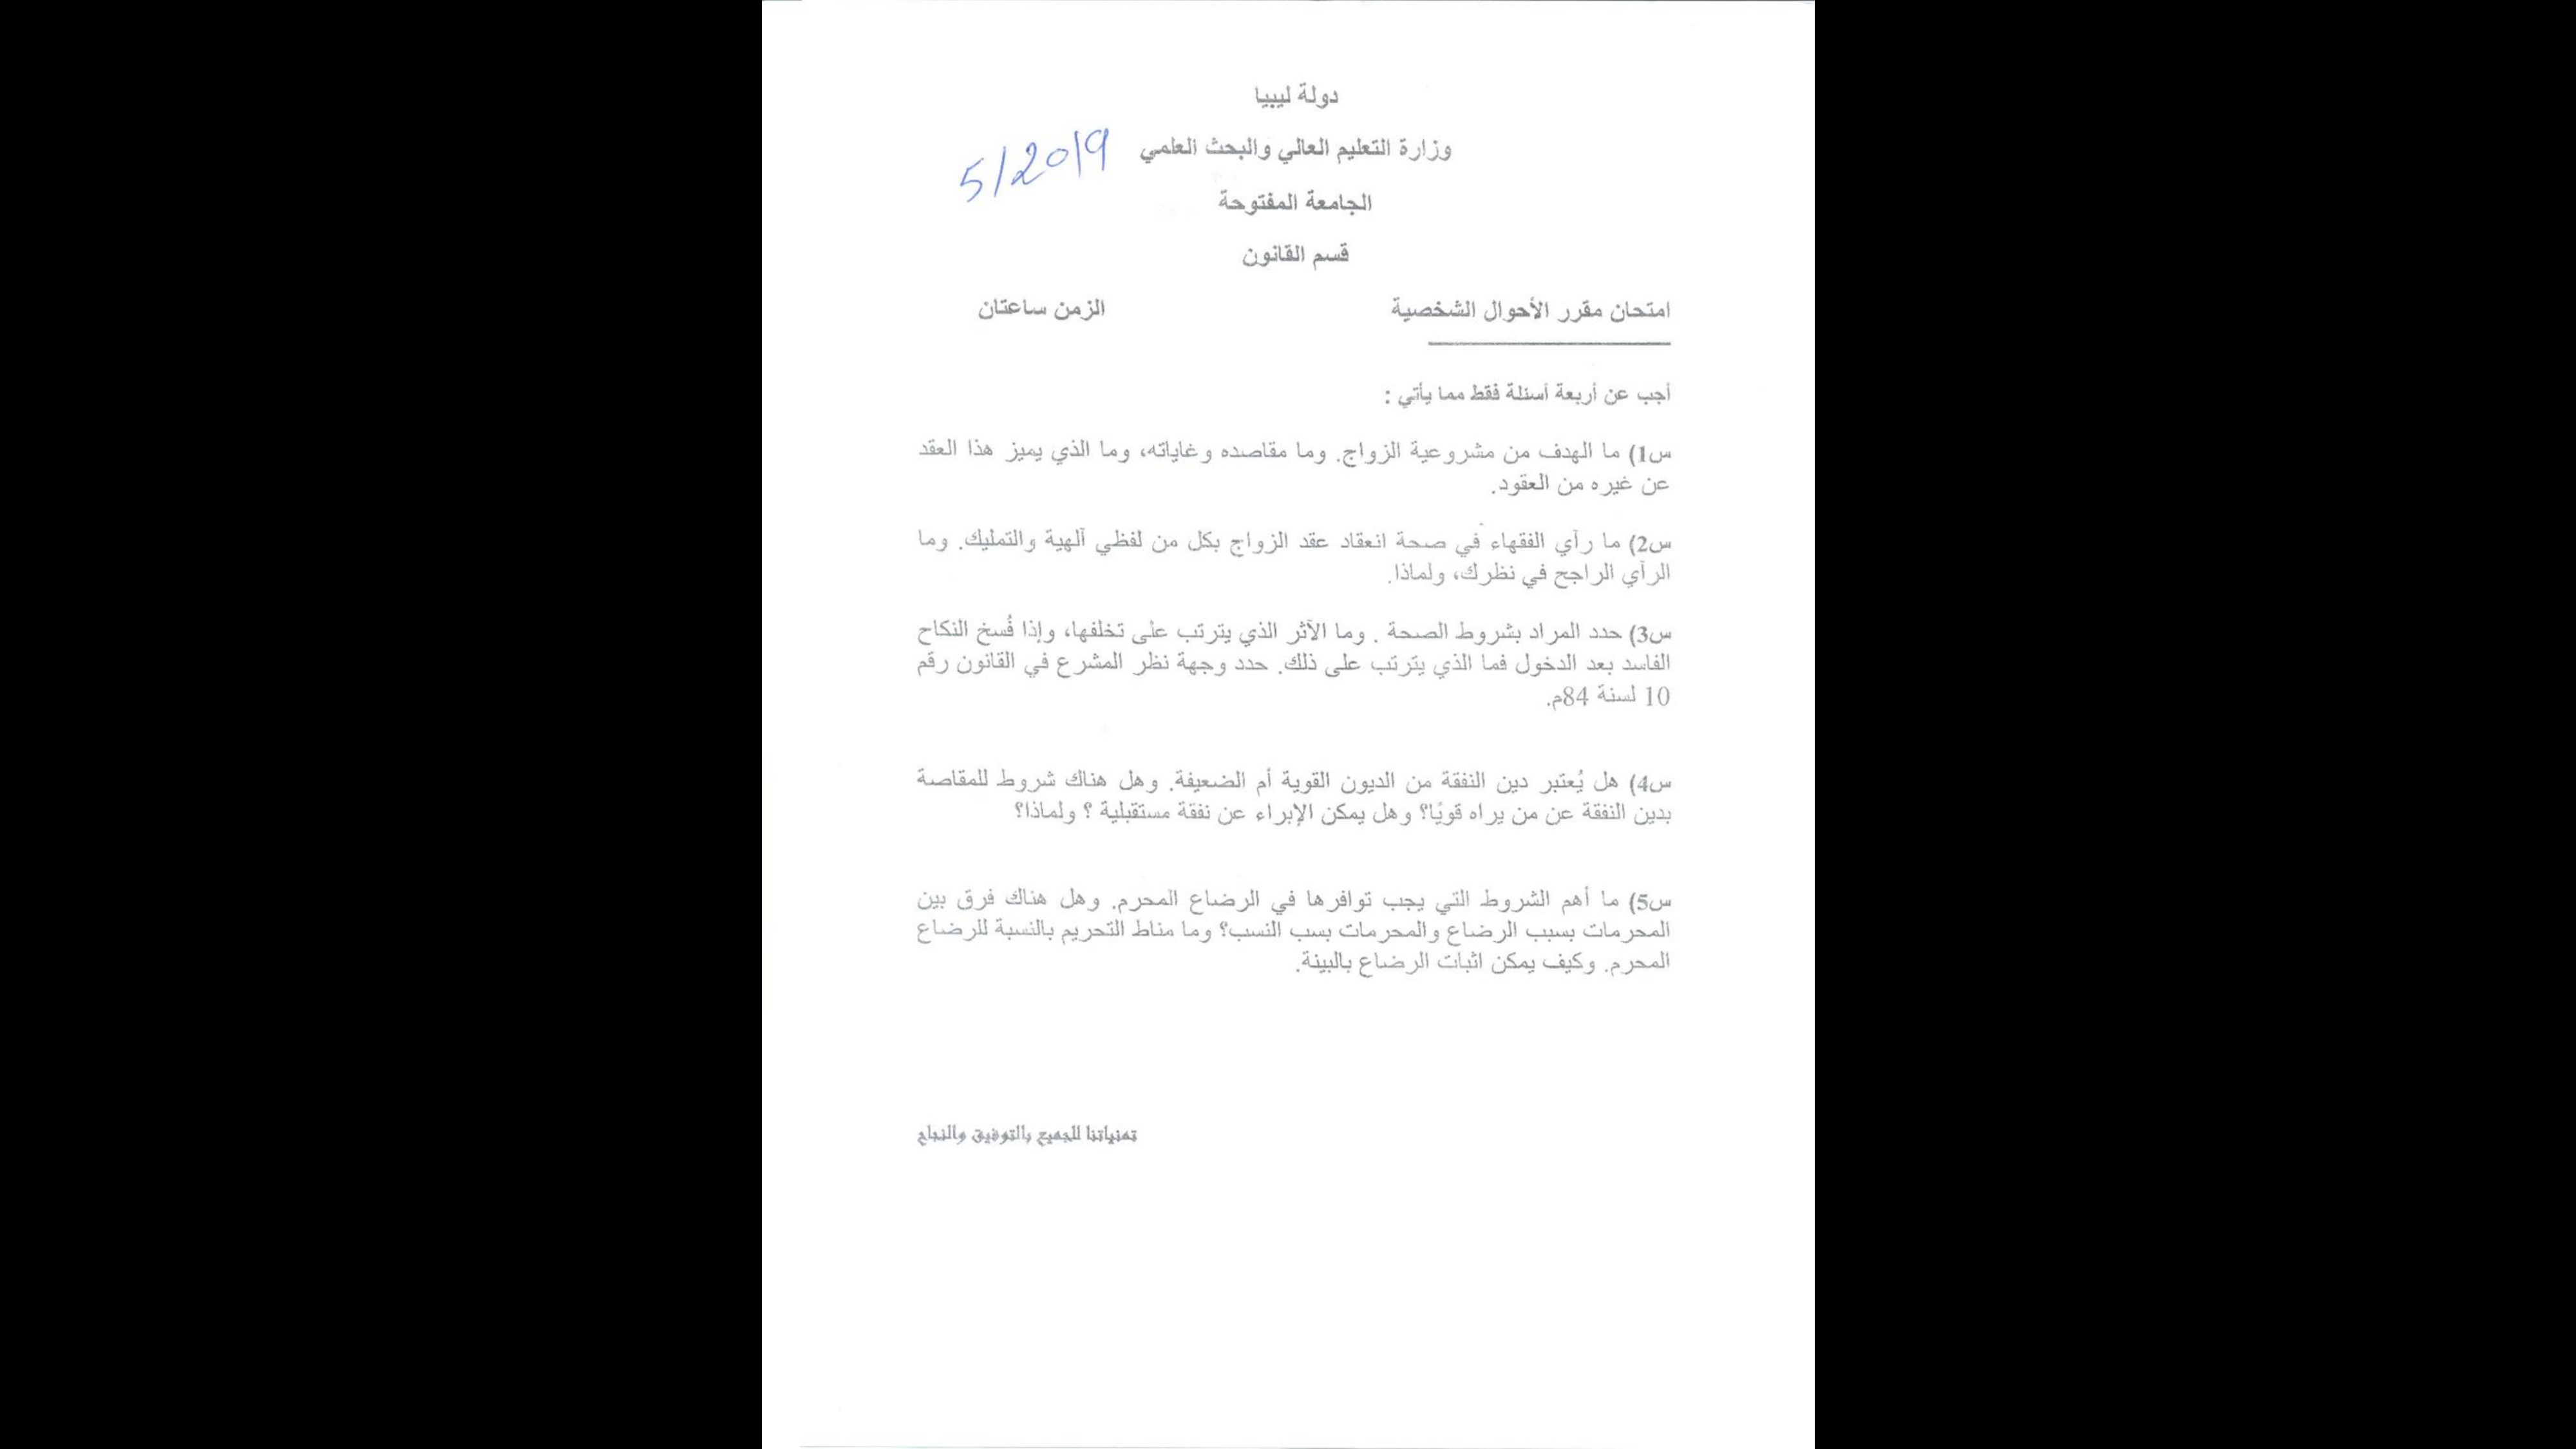 دولة ليبيا
وزارة التعليم العالي والبحث العلمي
5/2019
الجامعة المفتوحة
قسم القانون
امتحان مقرر الأحوال الشخصية الزمن ساعتان
أجب عن أربعة أسئلة فقط مما يأتي :
س1) ما الهدف من مشروعية الزواج. وما مقاصده وغاياته، وما الذي يميز هذا العقد
عن غيره من العقود.
س2) ما رآي الفقهاء في صحة انعقاد عقد الزواج بكل من لفظي آلهبة والتمليك. وما
الرآي الراجح في نظرك، ولماذا.
س3) حدد المراد بشروط الصحة . وما الآثر الذي يترتب على تخلفها، وإذا فُسخ النكاح
الفاسد بعد الدخول فما الذي يترتب على ذلك. حدد وجهة نظر المشرع في القانون رقم
10 لسنة 84م.
س4) هل يُعتبر دين النفقة من الديون القوية أم الضعيفة. وهل هناك شروط للمقاصة
بدين النفقة عن من يراه قويًا؟ وهل يمكن الإبراء عن نفقة مستقبلية ؟ ولماذا؟
س5) ما أهم الشروط التي يجب توافرها في الرضاع المحرم. وهل هناك فرق بين
المحرمات بسبب الرضاع والمحرمات بسب النسب؟ وما مناط التحريم بالنسبة للرضاع
المحرم. وكيف يمكن اثبات الرضاع بالبينة.
تمنياتنا للجميع بالتوفيق والنجاح